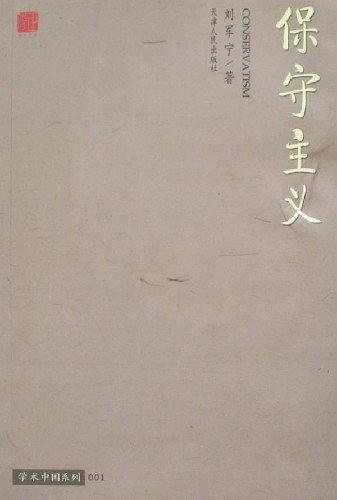 保守主义
CONSERVATISM
刘军宁/著
天津人民出版社
学术中国系列 001